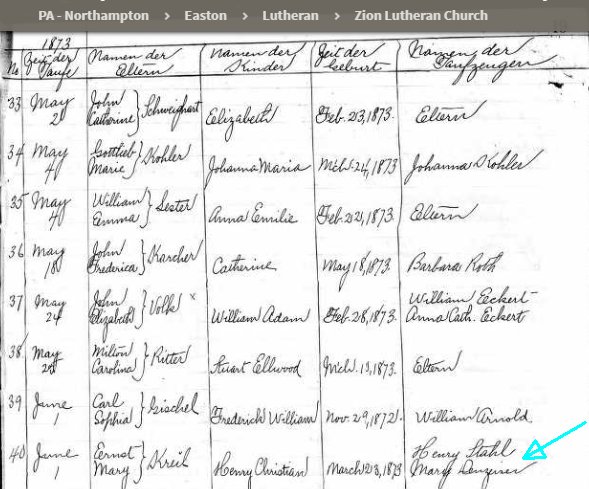 PA - Northampton > Easton > Lutheran > Zion Lutheran Church
1873
No. Zeit der Taufe Namen der Eltern Namen der Kinder Zeit der Geburt Namen der Taufzeugen
33 May 2 John Catherine } Schweighart Elizabeth Feb. 23, 1873. Eltern
34 May 4 Gottlieb Marie } Kohler Johanna Maria Mch. 24, 1873 Johanna Kohler
35 May 4 William Emma } Sester Anna Emilie Feb. 22, 1873. Eltern
36 May 18 John Frederica } Karcher Catherine May 18, 1873. Barbara Roth
37 May 24 John Elizabeth } Volk x William Adam Feb. 28, 1873. William Eckert Anna Cath. Eckert
38 May Milton Carolina } Ritter Stuart Ellwood Mch. 13, 1873. Eltern
39 June 1 Carl Sophia } Gischel Frederick William Nov. 29, 1872. William Arnold
40 June 1 Ernst Mary } Kreil Henry Christian March 23, 1873 Henry Stahl Mary